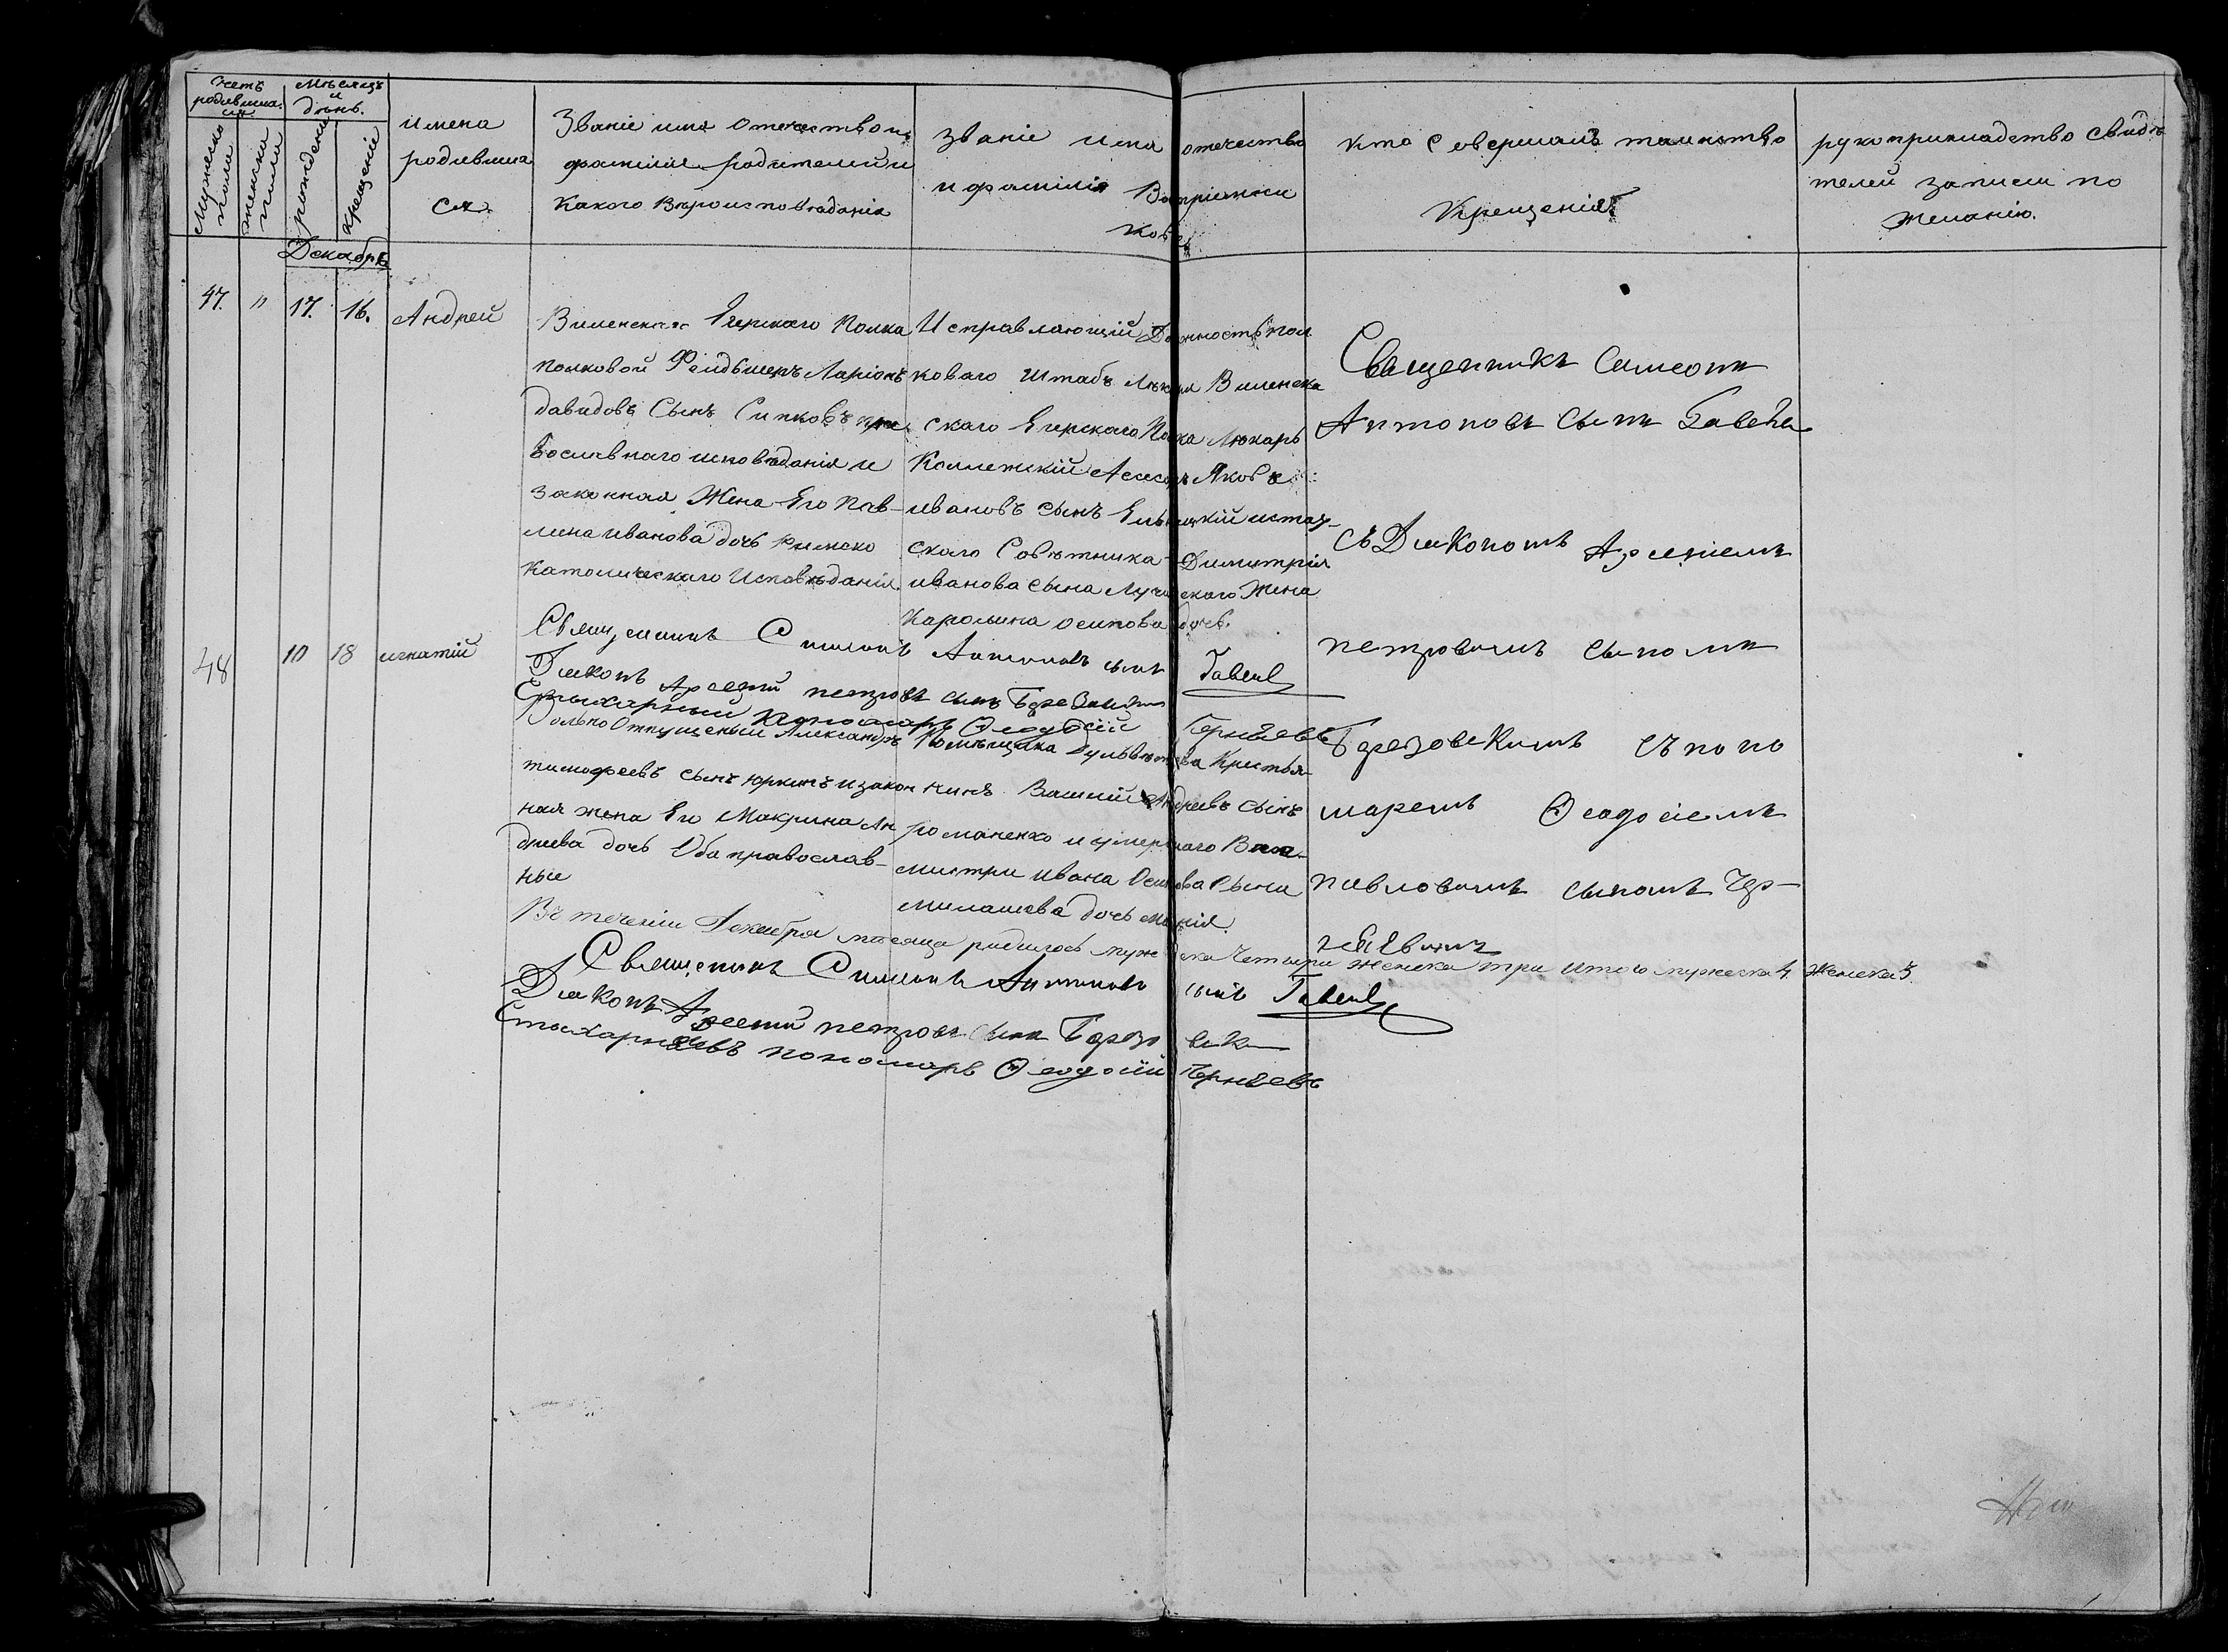 Счетъ родившихся
Мѣсяцъ и день.
Имена родившихся.
Званіе имя отечество и фамиліи родителей и какого вѣроисповѣданія
званіе имя отечество и фамилія воспріемниковъ
кто совершалъ таинство крещенія
рукоприкладство свидѣтелей записи по желанію.
Мужеска пола
женска пола
рожденіе
крещеніе
Декабрь
47. " 17. 16. Андрей
Виленскаго Егерскаго Полка
полковой Фелдшеръ Ларіонъ
давидовъ Сынъ Сипковъ пра
вославнаго исповѣданія и
законная Жена Его Пав-
лина иванова дочь Римско
Католическаго Исповѣданія.
Исправляющій Должность пол
коваго Штабъ Лѣкаря Виленска
скаго Егерскаго Полка Лѣкарь
Коллежскій Асесоръ Яковъ
ивановъ сынъ
скаго Совѣтника Димитрія
иванова сына Жена
Каролина осипова дочь.
Священникъ Симеонъ
Антоновъ сынъ
съ Діякономъ Арсеніемъ
петровымъ сыномъ
Березовскимъ съ поно
маремъ Ѳеодосіемъ
павловымъ сыномъ Чер-
няевымъ
Священникъ Симеонъ Антоновъ сынъ
Діяконъ Арсеній петровъ сынъ
Стихарный пономарь Ѳеодосій Черняевъ
48 10 18 игнатій
Вольно Отпущеный Александръ
тимофеевъ сынъ юркинъ и закон
ная жена Его Макрина Ан
дреева дочь Оба православ-
ные
Помѣщика Крестья-
нинъ Василій Андреевъ сынъ
романенко и умершаго
мистра ивана Осипова Сына
милашева дочь
Въ теченіи Декабря мѣсяца родилось мужеска четыри женска три итого мужеска 4. женска 3.
Священникъ Симеонъ Антоновъ сынъ
Діяконъ Арсеній петровъ сынъ Березовск
Стихарный пономарь Ѳеодосій Черняевъ